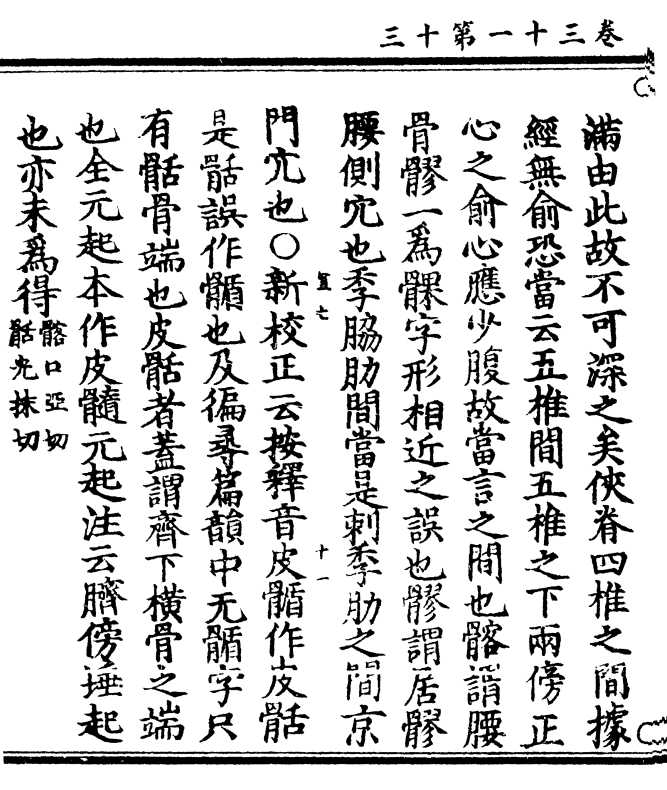 卷三十一第十三
滿由此故不可深之矣俠脊四椎之間據
經無俞恐當云五椎間五椎之下兩傍正
心之俞心應少腹故當言之間也髂謂腰
骨髎一為髁字形相近之誤也髎謂居髎
腰側穴也季脇肋間當是刺季肋之間京
門穴也○新校正云按釋音皮䯏作皮骺
是骺誤作䯏也及徧尋篇韻中无䯏字只
有骺骨端也皮骺者蓋謂齊下橫骨之端
也全元起本作皮髓元起注云臍傍埵起
也亦未為得髂口亞切骺光抹切
直七
十一